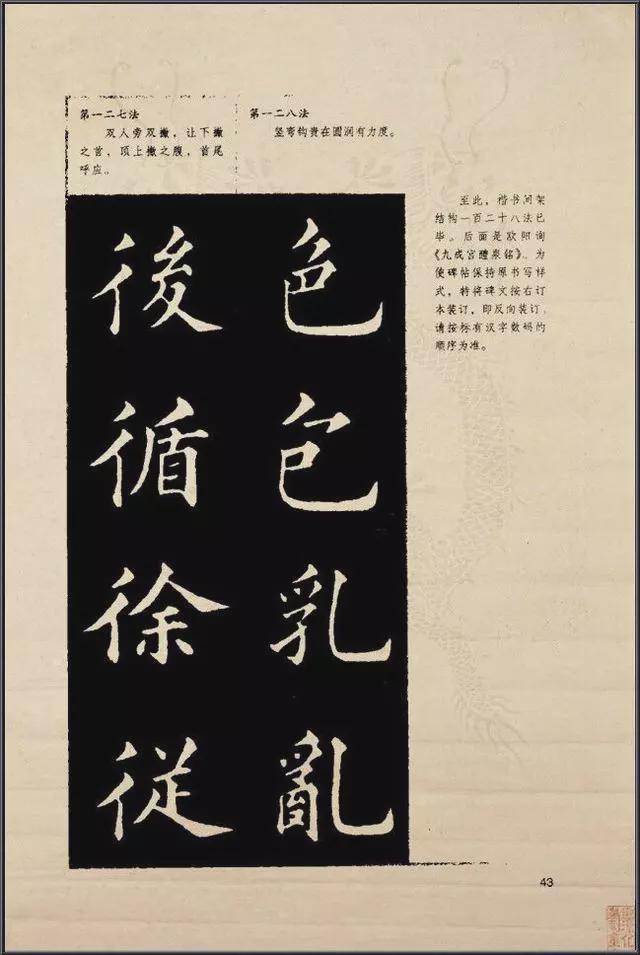 第一二七法
双人旁双撇,让下撇
之首,顶上撇之腹,首尾
呼应。
第一二八法
竖弯钩贵在圆润有力度。
後
循
徐
従
色
包
乳
亂
至此,楷书间架
结构一百二十八法已
毕。后面是欧阳询
《九成宫醴泉铭》。为
使碑帖保持原书写样
式,特将碑文按右订
本装订,即反向装订,
请按标有汉字数码的
顺序为准。
43